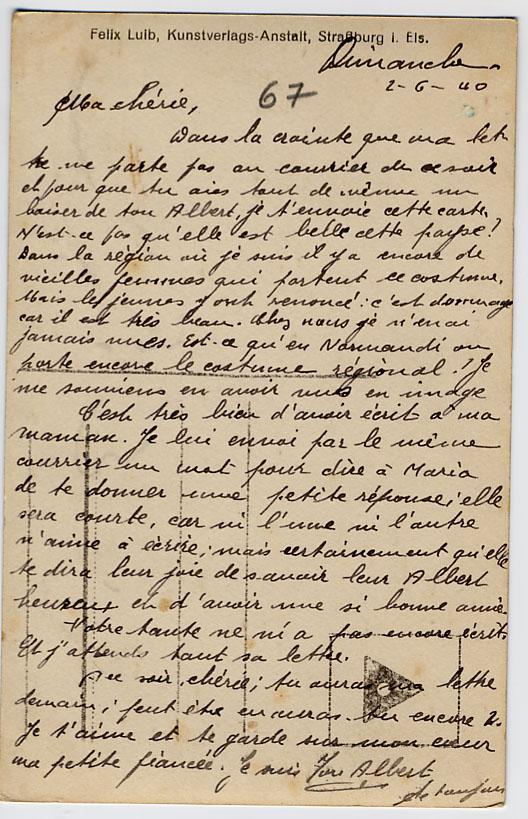 Felix Luib, Kunstverlags-Anstalt, Straßburg i. Els.
Dimanche
2-6-40
67
Ma chérie,
Dans la crainte que ma let
tre ne parte pas au courrier de ce soir
et pour que tu aies tout de même un
baiser de ton Albert, je t'envoie cette carte.
N'est-ce pas qu'elle est belle cette payse?
Dans la région où je suis il y a encore de
vieilles femmes qui portent ce costume.
Mais les jeunes y ont renoncé: c'est dommage
car il est très beau. Chez nous je n'en ai
jamais vues. Est-ce qu'en Normandi on
porte encore le costume régional? Je
me souviens en avoir vus en image
C'est très bien d'avoir écrit à ma
maman. Je lui envoi par le même
courrier un mot pour dire à Maria
de te donner une petite réponse; elle
sera courte, car ni l'une ni l'autre
n'aime à écrire; mais certainement qu'elle
te dira leur joie de savoir leur Albert
heureux et d'avoir une si bonne amie.
Votre tante ne m'a pas encore écrit
Et j'attends tant sa lettre.
A ce soir, chérie; tu auras ma lettre
demain; peut être en auras-tu encore 2.
Je t'aime et te garde sur mon cœur
ma petite fiancée. Je suis Ton Albert
de toujours